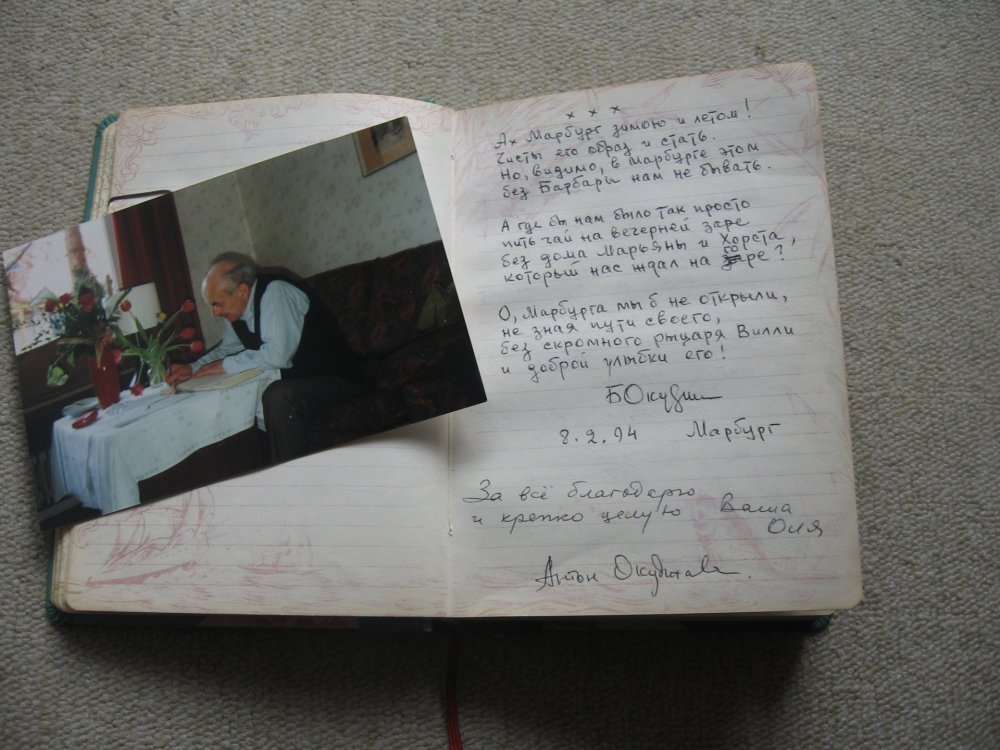 х х х
Ах Марбург зимою и летом!
Чисты его образ и стать.
Но, видимо, в Марбурге этом
без Барбары нам не бывать.
А где бы нам было так просто
пить чай на вечерней заре
без дома Марьяны и Хорста,
который нас ждал на горе?
О, Марбурга мы б не открыли,
не зная пути своего,
без скромного рыцаря Вилли
и доброй улыбки его!
БОкуджава
8.2.94 Марбург
За всё благодарю
и крепко целую Ваша
Оля
Антон Окуджава